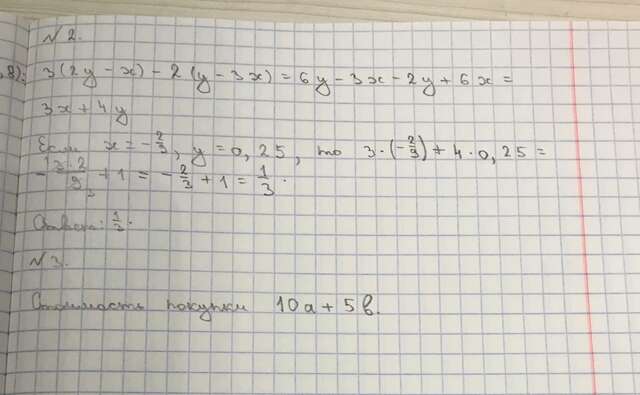 N 2.
8). 3(2y - x) - 2 (y - 3x) = 6y - 3x - 2y + 6x =
3x + 4y
Если x = -2/9, y = 0,25, то 3·(-2/9) + 4·0,25 =
-(3·2)/9 + 1 = -2/3 + 1 = 1/3.
Ответ: 1/3.
N 3.
Стоимость покупки 10a + 5b.